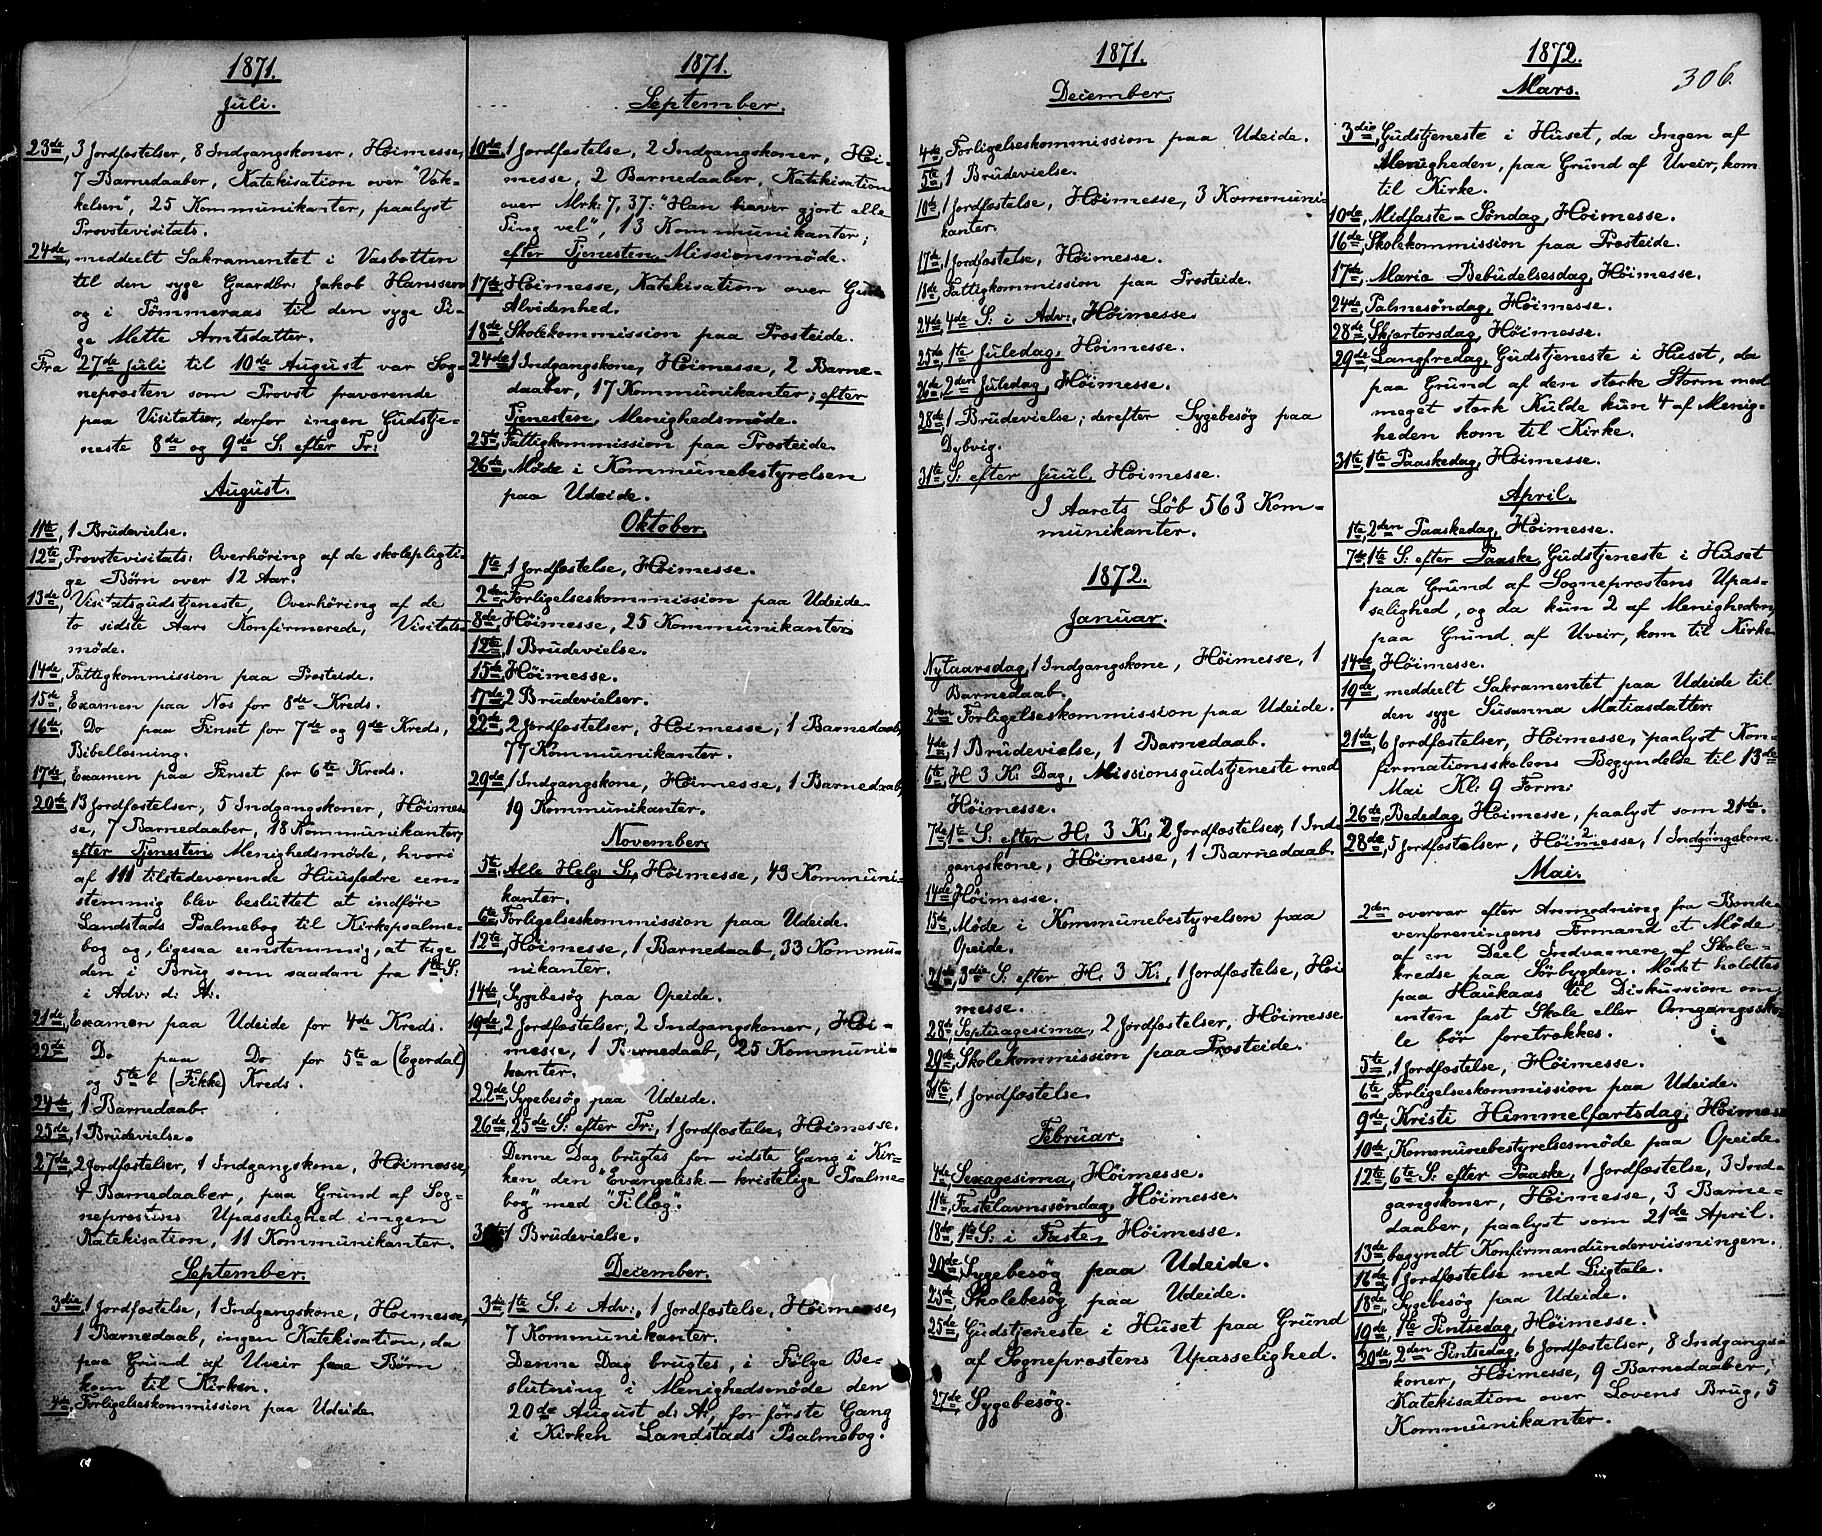 1871.
Juli.
23de, 3 Jordfæstelser, 8 Indgangskoner, Høimesse,
7 Barnedaaber, Katekisation over "Væk-
kelsen", 25 Kommunikanter, paalyst
Provstevisitats.
24de, meddeelt Sakramentet i Vasbotten
til den syge Gaardbr: Jakob Hanssen
og i Tømmeraas til den syge Pi-
ge Mette Arntsdatter.
Fra 27de Juli til 10de August var Sog-
nepresten som Provst fraværende
paa Visitatser, derfor ingen Gudstje-
neste 8de og 9de S: efter Tr:
August.
11te, 1 Brudevielse.
12te, Provstevisitats: Overhøring af de skolepligti-
ge Børn over 12 Aar.
13de, Visitatsgudstjeneste, Overhøring af de
to sidste Aars Konfirmerede, Visitats-
møde.
14de, Fattigkommission paa Prosteide.
15de, Examen paa Nös for 8de Kreds.
16de, Do paa Finset for 7de og 9de Kreds,
Bibellæsning.
17de, Examen paa Finset for 6te Kreds.
20de, 13 Jordfæstelser, 5 Indgangskoner, Høimes-
se, 7 Barnedaaber, 18 Kommunikanter;
efter Tjenesten Menighedsmøde, hvori
af 111 tilstedeværende Huusfædre een-
stemmig blev besluttet at indføre
Landstads Psalmebog til Kirkepsalme-
bog og, ligesaa eenstemmig, at tage
den i Brug som saadan fra 1ste S:
i Adv: d: A:.
21de, Examen paa Udeide for 4de Kreds.
22de, Do paa Do for 5te a (Egerdal)
og 5te b (Fikke) Kreds.
24de, 1 Barnedaab.
25de, 1 Brudevielse.
27de, 2 Jordfæstelser, 1 Indgangskone, Høimesse,
4 Barnedaaber, paa Grund af Sog-
neprestens Upasselighed ingen
Katekisation, 11 Kommunikanter.
September.
3die, 1 Jordfæstelse, 1 Indgangskone, Høimesse,
1 Barnedaab, ingen Katekisation, da
paa Grund af Uveir faae Børn
kom til Kirken.
4de, Forligelseskommission paa Udeide.
1871.
September.
10de, 1 Jordfæstelse, 2 Indgangskoner, Høi-
messe, 2 Barnedaaber, Katekisation
over Mrk: 7, 37: "Han haver gjort alle
Ting vel", 13 Kommunikanter;
efter Tjenesten Missionsmøde.
17de, Høimesse, Katekisation over Guds
Alvidenhed.
18de, Skolekommission paa Prosteide.
24de, 1 Indgangskone, Høimesse, 2 Barne-
daaber, 17 Kommunikanter; efter
Tjenesten, Menighedsmøde.
25te, Fattigkommission paa Prosteide.
26de, Møde i Kommunebestyrelsen
paa Udeide.
Oktober.
1ste, 1 Jordfæstelse, Høimesse.
2den, Forligelseskommission paa Udeide.
8de, Høimesse, 25 Kommunikanter.
12te, 1 Brudevielse.
15de, Høimesse.
17de, 2 Brudevielser.
22de, 2 Jordfæstelser, Høimesse, 1 Barnedaab,
77 Kommunikanter.
29de, 1 Indgangskone, Høimesse, 1 Barnedaab,
19 Kommunikanter.
November.
5te, Alle Helg: S:, Høimesse, 43 Kommuni-
kanter.
6te, Forligelseskommission paa Udeide.
12te, Høimesse, 1 Barnedaab, 33 Kommu-
nikanter.
14de, Sygebesøg paa Opeide.
19de, 2 Jordfæstelser, 2 Indgangskoner, Høi-
messe, 1 Barnedaab, 25 Kommuni-
kanter.
22de, Sygebesøg paa Udeide.
26de, 25de S: efter Tr:, 1 Jordfæstelse, Høimesse.
Denne Dag brugtes for sidste Gang i Kir-
ken den "Evangelisk-kristelige Psalme-
bog" med "Tillæg".
1 Brudevielse.
December.
3die, 1ste S: i Adv:, 1 Jordfæstelse, Høimesse,
7 Kommunikanter.
Denne Dag brugtes, i Følge Be-
slutning i Menighedsmøde den
20de August d: A:, for første Gang
i Kirken Landstads Psalmebog.
1871.
December.
4de, Forligelseskommission paa Udeide.
5te, 1 Brudevielse.
10de, 1 Jordfæstelse, Høimesse, 3 Kommuni-
kanter.
17de, 1 Jordfæstelse, Høimesse.
18de, Fattigkommission paa Prosteide.
24de, 4de S: i Adv:, Høimesse.
25de, 1ste Juledag, Høimesse.
26de, 2den Juledag, Høimesse.
28de, 1 Brudevielse; derefter Sygebesøg paa
Dybvig.
31te, S: efter Juul, Høimesse.
I Aarets Løb 563 Kom-
munikanter.
1872.
Januar.
Nytaarsdag, 1 Indgangskone, Høimesse, 1
Barnedaab.
2den, Forligelseskommission paa Udeide.
4de, 1 Brudevielse, 1 Barnedaab.
6te, H. 3 K: Dag, Missionsgudstjeneste med
Høimesse.
7de, 1ste S: efter H. 3 K:, 2 Jordfæstelser, 1 Ind-
gangskone, Høimesse, 1 Barnedaab.
14de, Høimesse.
15de, Møde i Kommunebestyrelsen paa
Opeide.
21de, 3die S: efter H: 3 K:, 1 Jordfæstelse, Høi-
messe.
28de, Septuagesima, 2 Jordfæstelser, Høimesse.
29de, Skolekommission paa Prosteide.
31te, 1 Jordfæstelse.
Februar.
4de, Sexagesima, Høimesse.
11te, Fastelavnssøndag, Høimesse.
18de, 1ste S: i Faste, Høimesse.
20de, Sygebesøg paa Udeide.
23de, Skolebesøg paa Udeide.
25de, Gudstjeneste i Huset paa Grund
af Sogneprestens Upasselighed.
27de, Sygebesøg.
1872.
306.
Mars.
3die, Gudstjeneste i Huset, da Ingen af
Menigheden, paa Grund af Uveir, kom
til Kirke.
10de, Midfaste-Søndag, Høimesse.
16de, Skolekommission paa Prosteide.
17de, Mariæ Bebudelsesdag, Høimesse.
24de, Palmesøndag, Høimesse.
28de, Skjærtorsdag, Høimesse.
29de, Langfredag, Gudstjeneste i Huset, da
paa Grund af den stærke Storm med
meget stærk Kulde kun 4 af Menig-
heden kom til Kirke.
31te, 1ste Paaskedag, Høimesse.
April.
1ste, 2den Paaskedag, Høimesse.
7de, 1ste S: efter Paaske, Gudstjeneste i Huset
paa Grund af Sogneprestens Upas-
selighed, og da kun 2 af Menigheden,
paa Grund af Uveir, kom til Kirke.
14de, Høimesse.
19de, meddeelt Sakramentet paa Udeide til
den syge Susanna Matiasdatter.
21de, 6 Jordfæstelser, Høimesse, paalyst Kon-
firmationsskolens Begyndelse til 13de
Mai Kl: 9 Form:
26de, Bededag, Høimesse, paalyst som 21de.
28de, 5 Jordfæstelser, Høimesse, 1 Indgangskone.
Mai.
2den overvær efter Anmodning fra Bonde-
venforeningens Formand et Møde
af en Deel Indvaanere af Skole-
kredse paa Sørbygden. Mødet holdtes
paa Haukaas til Diskussion om
enten fast Skole eller Omgangssko-
le bør foretrækkes.
5te, 1 Jordfæstelse, Høimesse.
6te, Forligelseskommission paa Udeide.
9de, Kristi Himmelfartsdag, Høimesse.
10de, Kommunebestyrelsesmøde paa Opeide.
12te, 6te S: efter Paaske, 1 Jordfæstelse, 3 Ind-
gangskoner, Høimesse, 3 Barne-
daaber, paalyst som 21de April.
13de, begyndt Konfirmandunderviisningen.
16de, 1 Jordfæstelse med Liigtale.
18de, Sygebesøg paa Udeide.
19de, 1ste Pintsedag, Høimesse.
20de, 2den Pintsedag, 6 Jordfæstelser, 8 Indgangs-
koner, Høimesse, 9 Barnedaaber,
Katekisation over Lovens Brug, 5
Kommunikanter.